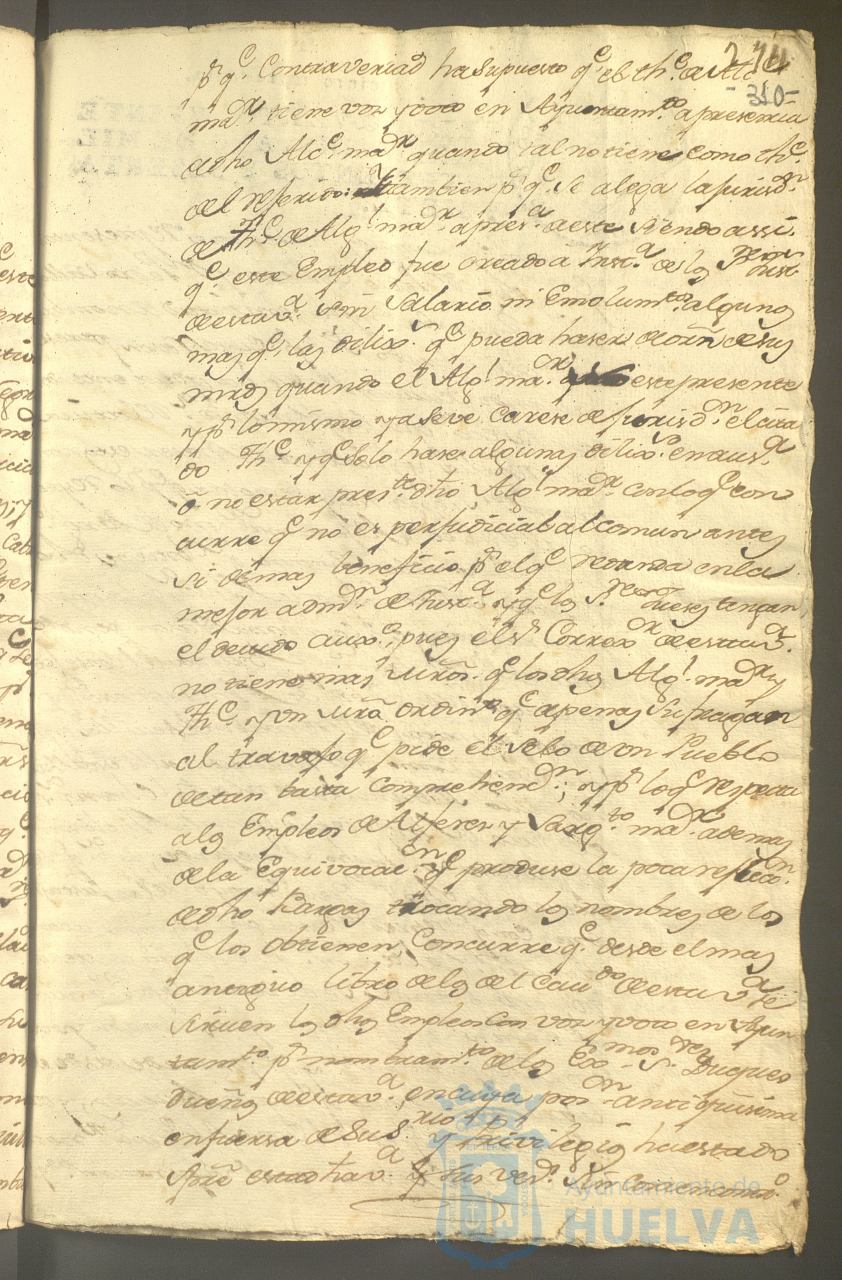 274
-310-
pr qe. Contra verdad ha supuesto qe. el the. de Alge.
mar. tiene voz y voto en Ayuntamto. a presencia
de dho Alge. mar. quando tal no tiene como the.
del referido: tambien pr qe. se alega la jurisdn.
de The. de Algl. mar. a presa. de este siendo assi.
qe. este Empleo fue creado a Insta. de los Sres
de esta va. sin salario ni Emolumtos. algunos
mas qe. las dilixs. qe. pueda haser de orn. de sus
mrds quando el Algl. mar. este presente
y pr. lo mismo ya se ve carese de jurisdn. el cita
do The. y qe. solo hase algunas dilixs. en ausa.
ô no estar preste. dho Algl. mar. con lo qe. con
curre qe. no es perjudicial al comun antes
si de mas beneficio pr. el qe. redunda en la
mejor admn. de Justa. y qe. los Sres Jueses tengan
el devido auxo. pues el sr. Corregr. de esta va.
no tiene mas Mrôs. qe. los dhos Algl. mar. y
The. y un Mrô. Ordino. qe. apenas sufragan
al travajo qe. pide el selo de un Pueblo
de tan basta comprehenn.; y pr. lo qe. respecta
a los Empleos de Alferes y Sargto. mar. ademas
de la Equivocacn. qe. produse la poca reflecn.
de dho Bargas trocando los nombres de los
qe. los obtienen, Concurre qe. desde el mas
antiguo libro de los del Cavdo. de esta va. se
sirven los dhos Empleos con voz y voto en Ayun
tamto. pr. nombramto. de los Exmos Sres Duques
dueños de esta va. en cuya posn. antiquisima
en fuersa de sus y privilegios ha estado
spre esta dha va. y sus vesos. sin
Ayuntamiento de
HUELVA